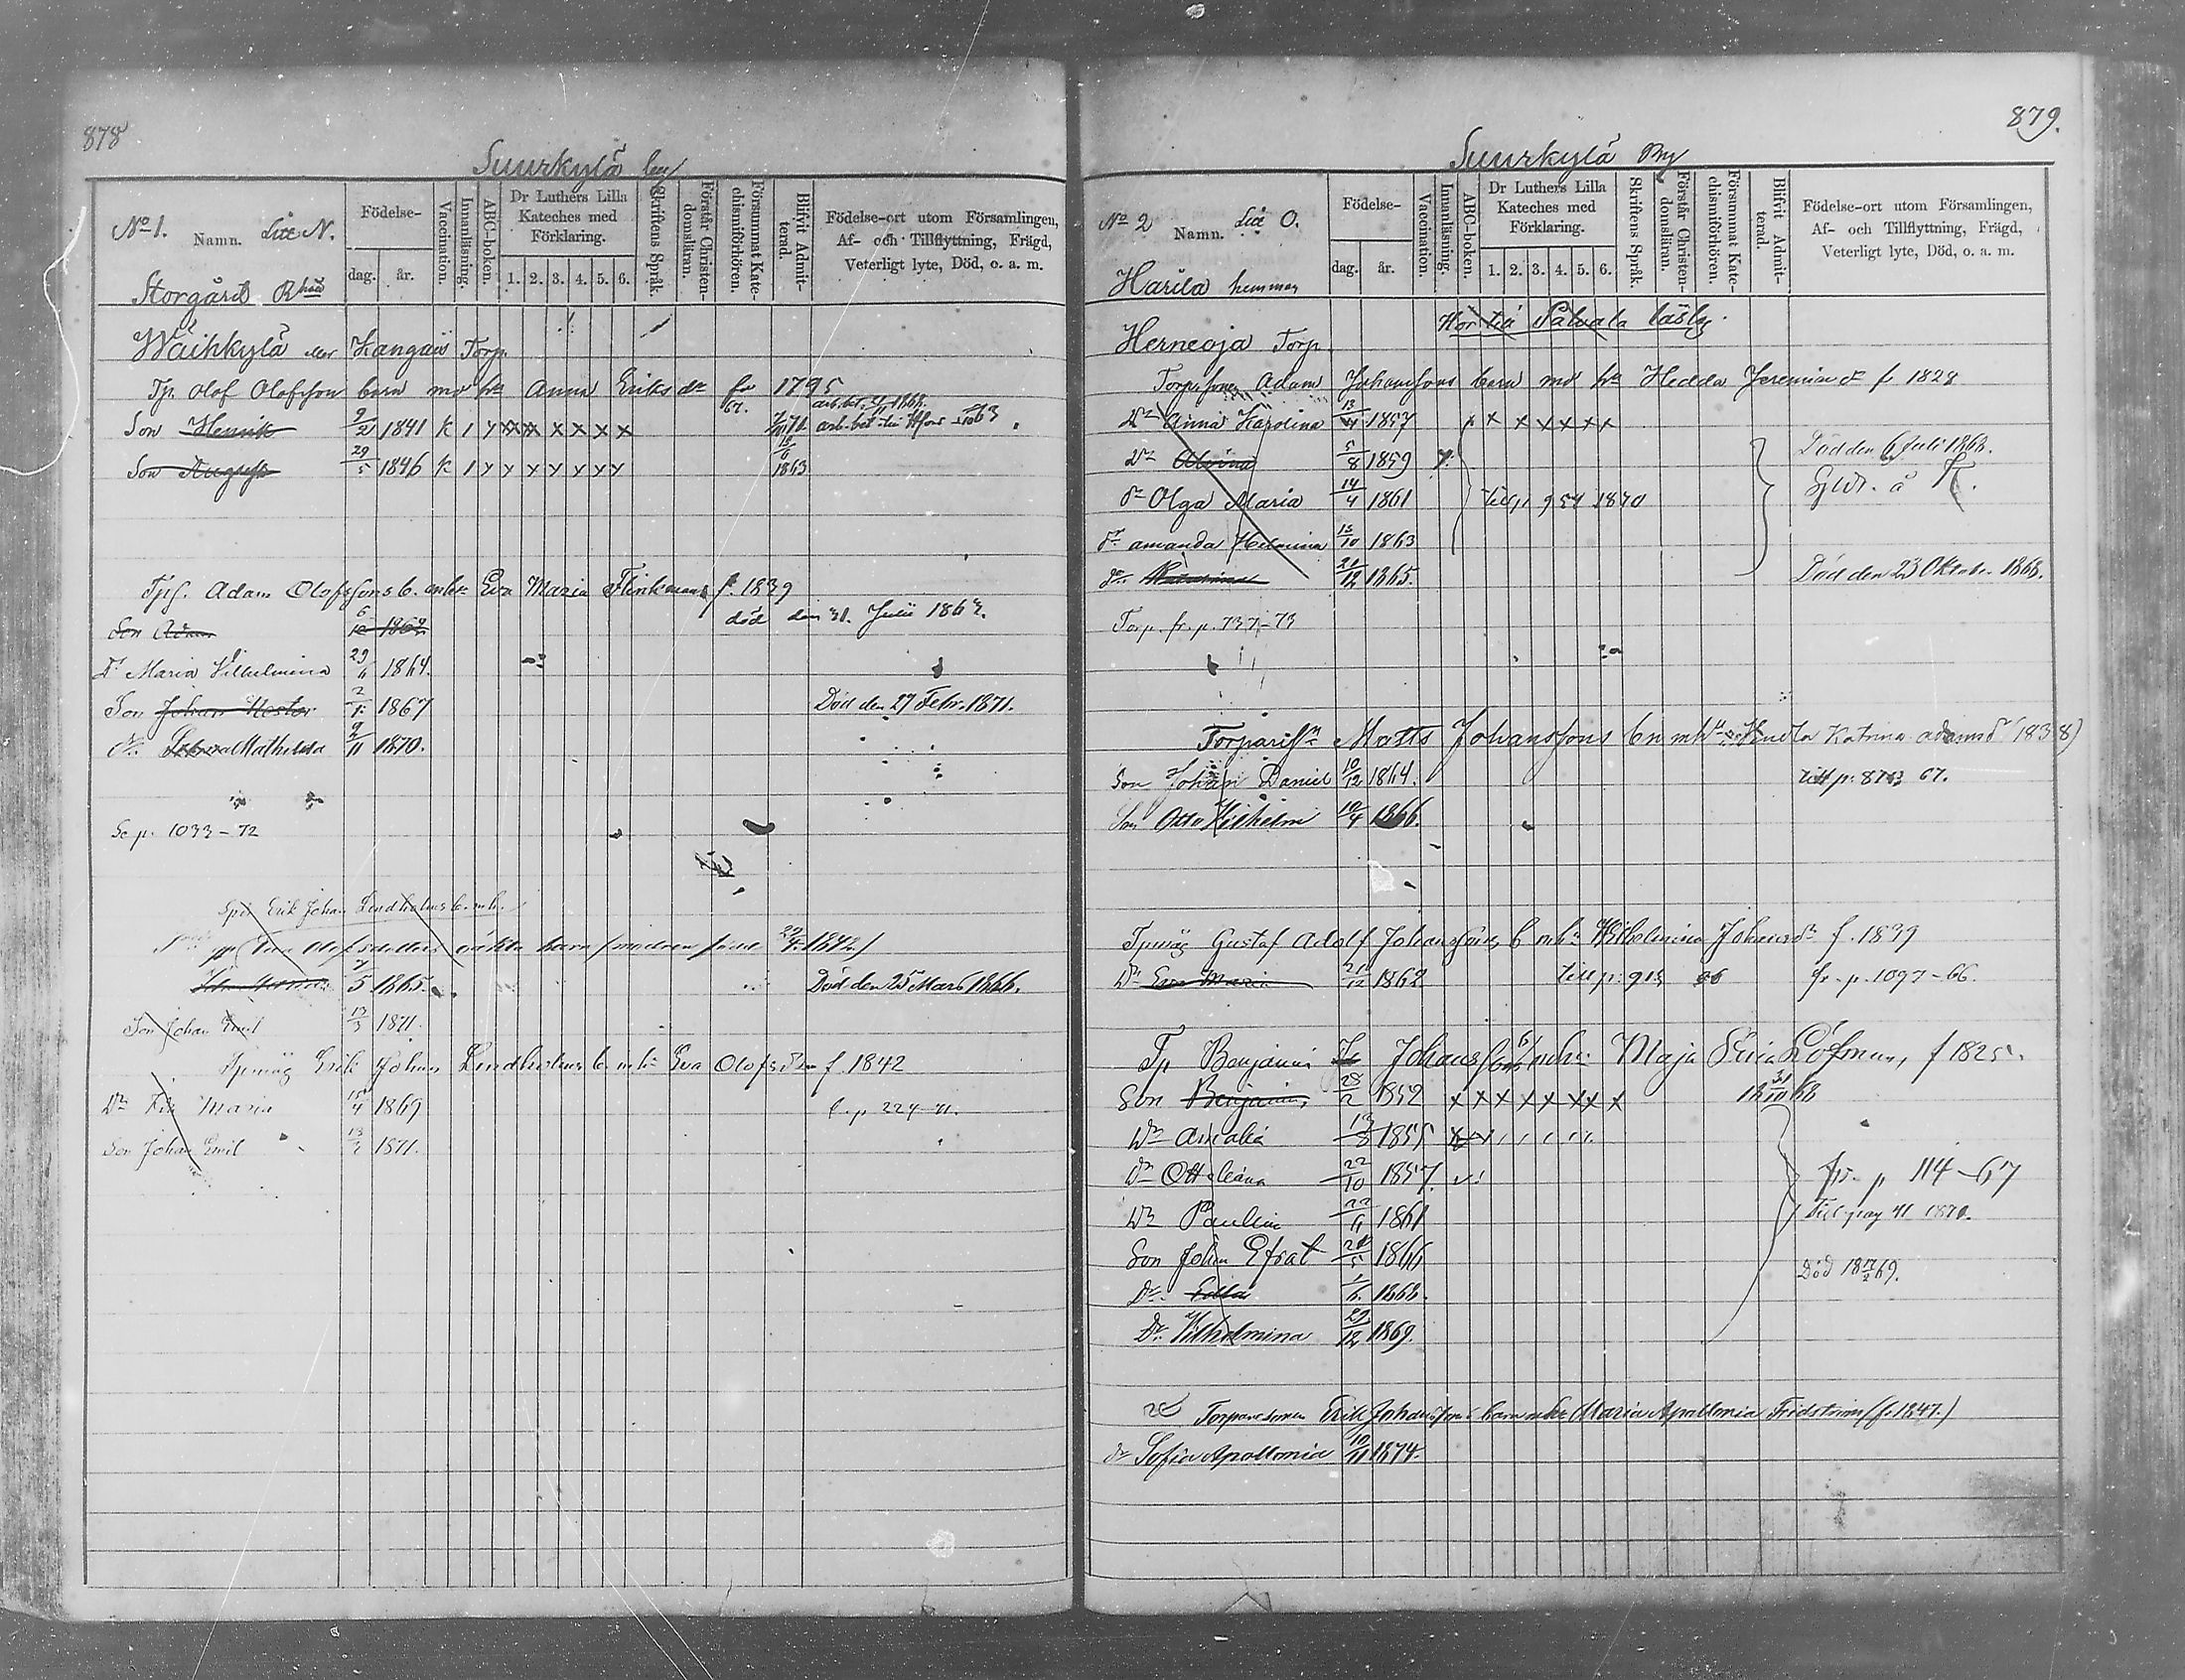 878
Suurkylä by
No 1. Namn. Litt N.
Födelse-
dag. år.
Vaccination.
Innanläsning.
ABC-boken.
Dr Luthers Lilla Kateches med Förklaring.
1. 2. 3. 4. 5. 6.
Skriftens Språk.
Förstår Christen-domsläran.
Försummat Kate-chismiförhören.
Blifvit Admit-terad.
Födelse-ort utom Församlingen, Af- och Tillflyttning, Frägd, Veterligt lyte, Död, o. a. m.
Storgård
Wäihkylä eller Kangas Torp
Tp. Olof Olofsson barn md hu Anna Eriks dr fd 1795
Son Henrik 9/21 1841 K 1
Son August 29/5 1846 K 1 1863
Tpf. Adam Olofssons b. mhu Eva Maria Flinkman f. 1839
Son Adam död den 31. Julii 1863.
Dr Maria Vilhelmina 1864.
Son Johan Nestor 1867 Död den 27 Febr. 1871.
Dr. Mathilda 9/11 1870.
Se p. 1033-72
Spis Erik Johan Lindholms b. mh.
Olofsdotters oäkta barn (modren född 1842.)
5 1865. Död den 25 Mars 1866.
Son Johan Emil 13/3 1871.
Tpmåg Erik Johan Lindholms b. mhu Eva Olofsdr f. 1842
Dr Maria 15/4 1869 p 224-71.
Son Johan Emil 1871.
879.
Suurkylä By
No 2 Namn. Litt O.
Födelse-
dag. år.
Vaccination.
Innanläsning.
ABC-boken.
Dr Luthers Lilla Kateches med Förklaring.
1. 2. 3. 4. 5. 6.
Skriftens Språk.
Förstår Christen-domsläran.
Försummat Kate-chismiförhören.
Blifvit Admit-terad.
Födelse-ort utom Församlingen, Af- och Tillflyttning, Frägd, Veterligt lyte, Död, o. a. m.
Harila hemman
Hör till läslag.
Herneoja Torp
Torpsonen Adam Johanssons barn md hu Hedda Jeremiædr f 1828
Dr Anna Karolina 1857
Dr Alvina 5/8 1859 Död den 6 Juli 1868.
dr Olga Maria 14/4 1861 till p 954 1870
dr Amanda Helmina 15/10 1863
dr. 21/12 1865. Död den 23 Oktob. 1868.
Torp. fr. p. 737-73
Matts Johanssons bn mhu Hedda Katrina Adamsdr 1838)
Son Johan Daniel 10/12 1864.
Son Otto Vilhelm 10/4 1866.
Tpmåg Gustaf Adolf Johanssons b mhu Wilhelmina Johansdr f. 1839
Dr Eva Maria 21/12 1862 till p. 913 66 fr. p. 1097-66.
Tp Benjamin Johanssons b mhu Maja Stina Löfman, f 1825.
Son Benjamin 28/2 1852
Dr Amalia 1855
Dr Otteliana 22/10 1857.
Dr Paulin 1861 fr. p 114-67
Till pag 41 1870.
Son Johan Efrat 1866
Dr. Edla 1868. Död
Dr. Vilhelmina 29/12 1869.
Torparesonen Erik Johanssons barn mhu Maria Apollonia Fridström (f. 1847.)
dr Sofia Apollonia 10/11 1874.